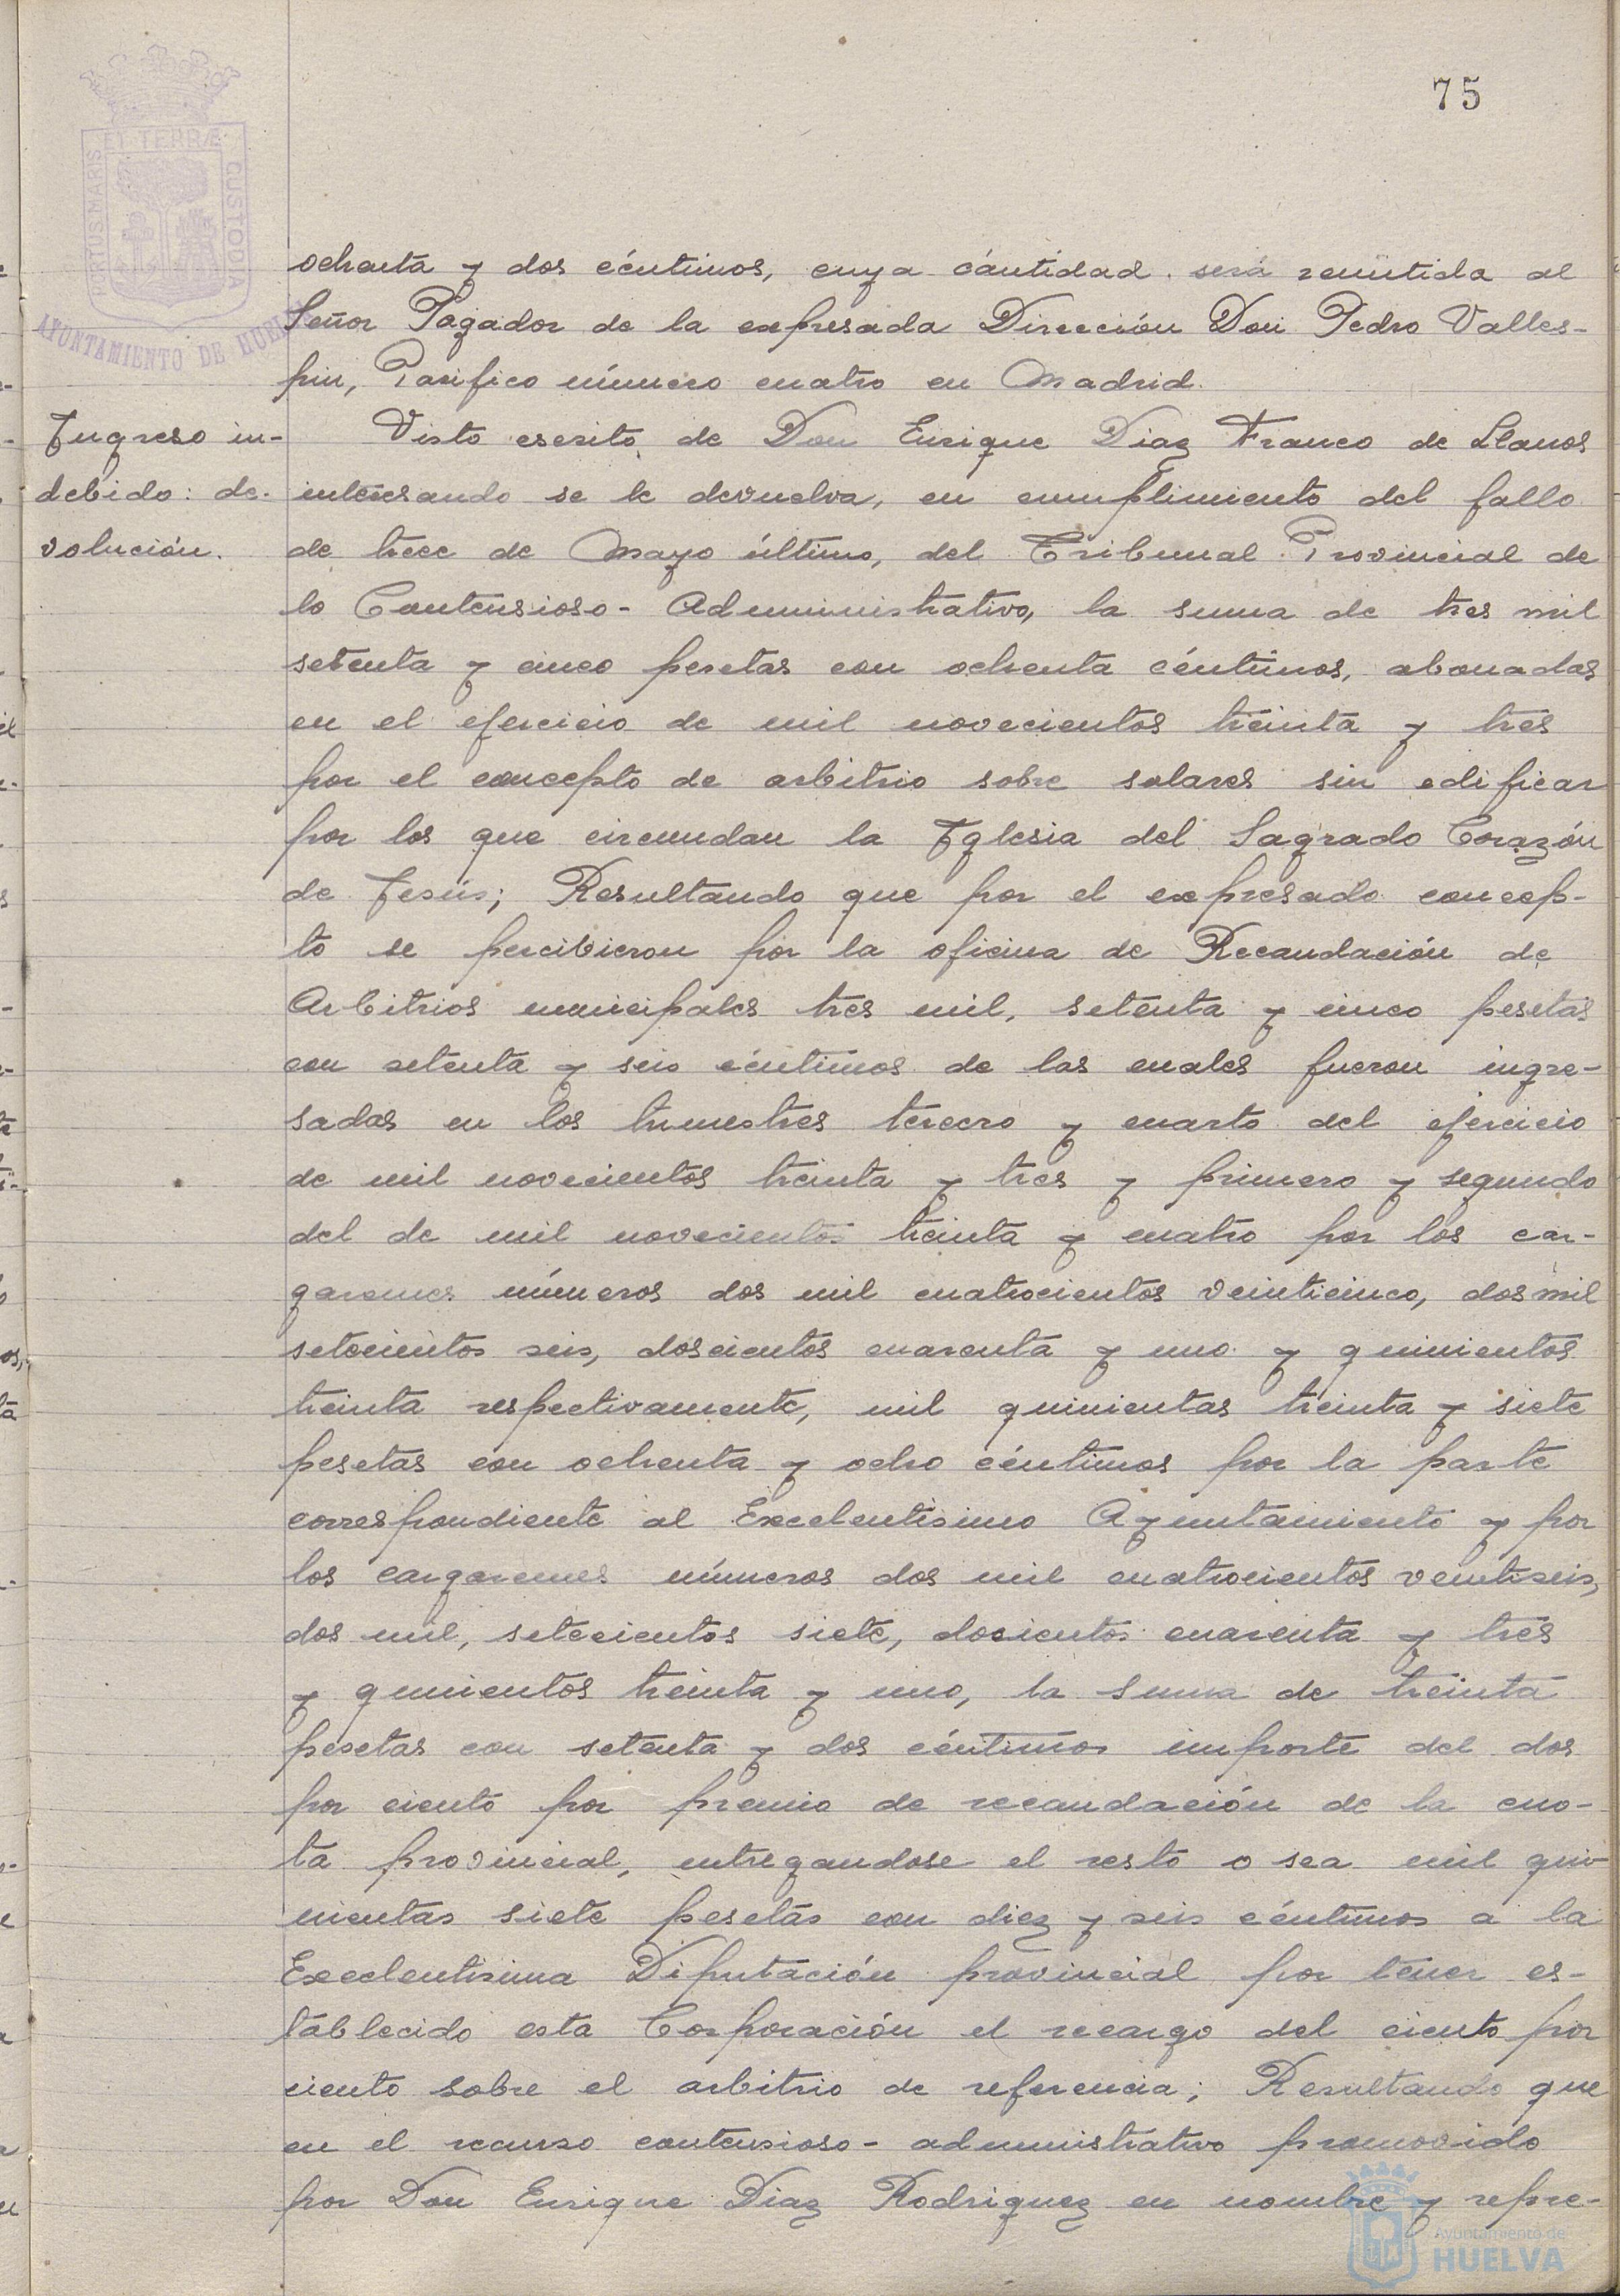 75
PORTUS MARIS ET TERRÆ CUSTODIA
AYUNTAMIENTO DE HUELVA
ochenta y dos céntimos, cuya cantidad será remitida al
Señor Pagador de la expresada Dirección Don Pedro Valles-
pin, Pacifico número cuatro en Madrid.
Ingreso in-
debido: de-
volución.
Visto escrito de Don Enrique Diaz Franco de Llanos
interesando se le devuelva, en cumplimiento del fallo
de trece de Mayo último, del Tribunal Provincial de
lo Contensioso-Administrativo, la suma de tres mil
setenta y cinco pesetas con ochenta céntimos, abonadas
en el ejercicio de mil novecientos treinta y tres
por el concepto de arbitrio sobre solares sin edificar
por los que circundan la Iglesia del Sagrado Corazón
de Jesús; Resultando que por el expresado concep-
to se percibieron por la oficina de Recaudación de
Arbitrios municipales tres mil, setenta y cinco pesetas
con setenta y seis céntimos de las cuales fueron ingre-
sadas en los trimestres tercero y cuarto del ejercicio
de mil novecientos treinta y tres y primero y segundo
del de mil novecientos treinta y cuatro por los car-
garemes números dos mil cuatrocientos veinticinco, dos mil
setecientos seis, doscientos cuarenta y uno y quinientos
treinta respectivamente, mil quinientas treinta y siete
pesetas con ochenta y ocho céntimos por la parte
correspondiente al Excelentísimo Ayuntamiento y por
los cargaremes números dos mil cuatrocientos veintiseis,
dos mil, setecientos siete, docientos cuarenta y tres
y quinientos treinta y uno, la suma de treinta
pesetas con setenta y dos céntimos importe del dos
por ciento por premio de recaudación de la cuo-
ta provincial, entregandose el resto o sea mil qui-
nientas siete pesetas con diez y seis céntimos a la
Excelentisima Diputación provincial por tener es-
tablecido esta Corporación el recargo del ciento por
ciento sobre el arbitrio de referencia; Resultando que
en el recurso contensioso-administrativo promovido
por Don Enrique Diaz Rodriguez en nombre y repre-
Ayuntamiento de
HUELVA